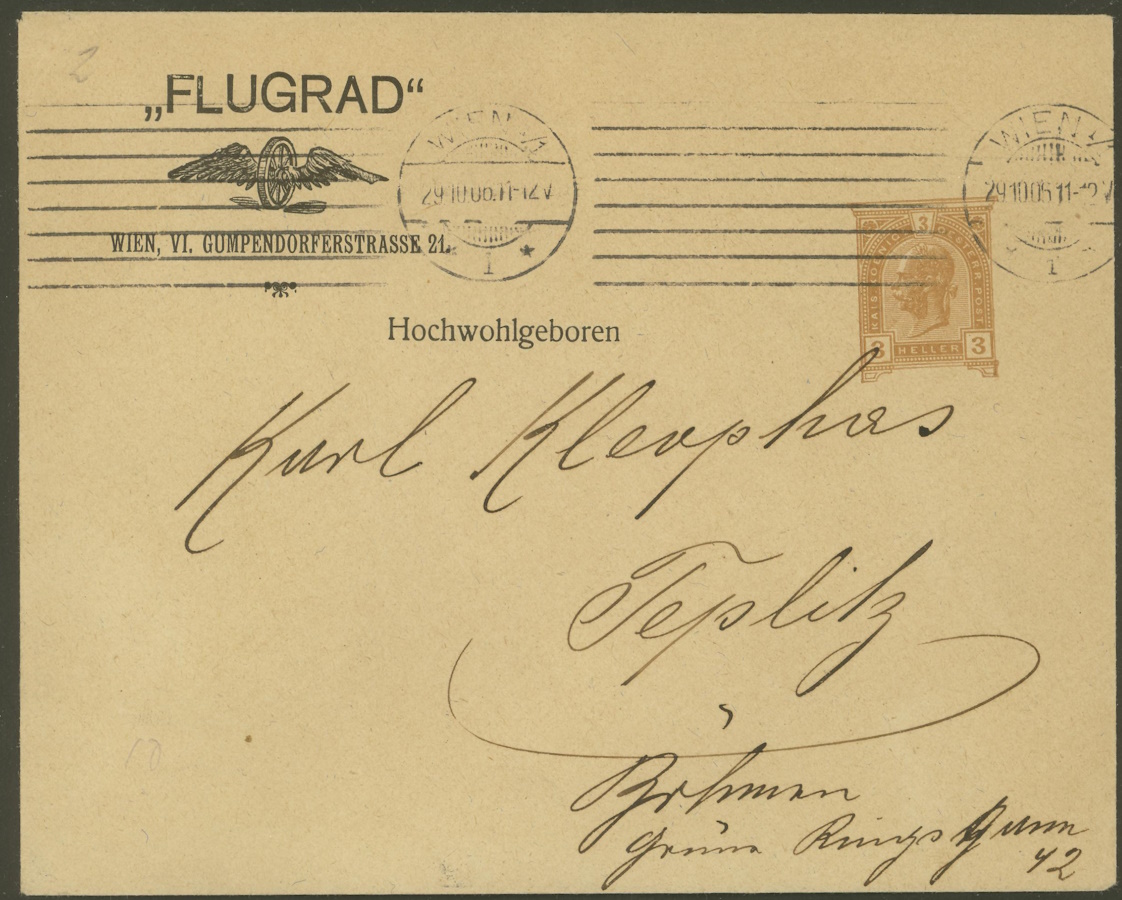 2
„FLUGRAD“
WIEN, VI. GUMPENDORFERSTRASSE 21.
WIEN 1/1
29.10.06.11-12V
1
WIEN 1
29.10.06 11-12V
1
3
KAIS. KOENIGL. OESTERR. POST
3 HELLER 3
Hochwohlgeboren
Karl Kleophas
Teplitz
Böhmen
Grüne Ring
42